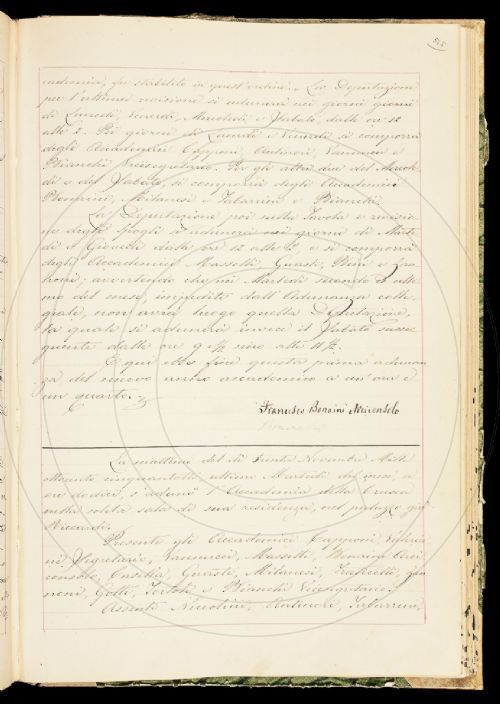 515
cademia, fu stabilito in quest'ordine. La Deputazione
per l'ultima revisione si adunerà nei giorni
di Lunedì, Venerdì, Mercoledì e Sabato, dalle ore 12
alle 2. Pei giorni di Lunedì e Venerdì si comporrà
degli Accademici Capponi, Antinori, Vannucci e
Bianchi Vicesegretario. Per gli altri due del Mercole-
dì e del Sabato, si comporrà degli Accademici
Milanesi e Tabarrini e Bianchi.
La Deputazione poi sulla Tavola e revisio-
ne degli spogli si adunerà nei giorni di Marte-
dì e Giovedì dalle ore 12 alle 2 e si comporrà
degli Accademici Massetti, Guasti,
avvertendo che nei Martedì secondo e ulti-
mo del mese, impedito dall'Adunanza colle-
giale, non avrà luogo questa Deputazione,
la quale si adunerà invece il Sabato susse-
guente dalle ore 9 ½ sino alle 11 ½.
E qui ebbe fine questa prima adunan-
za del nuovo anno accademico a un'ora e
un quarto.
Francesco Bonaini Arciconsolo
La mattina del dì Trenta Novembre Mille
ottocento cinquantotto ultimo Martedì del mese, a
ore dodici, s'adunò l'Accademia della Crusca
nella solita sala di sua residenza, nel palazzo già
Riccardi.
Presenti gli Accademici Capponi,
Segretario, Vannucci, Massetti, Bonaini Arci-
consolo, Casella, Guasti, Milanesi,
e Bianchi Vicesegretario.
Assenti Niccolini, Antinori, Tabarrini,